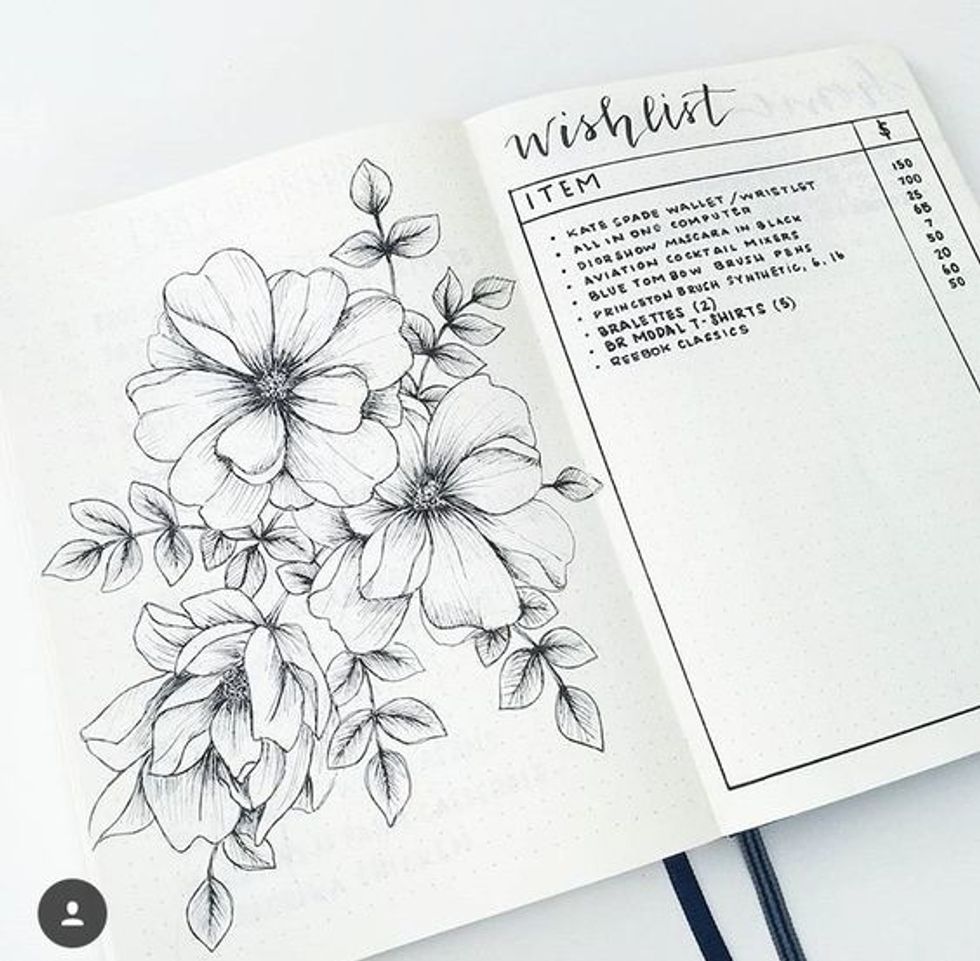 wishlist
ITEM $
• KATE SPADE WALLET / WRISTLET 150
• ALL IN ONE COMPUTER 700
• DIORSHOW MASCARA IN BLACK 25
• AVIATION COCKTAIL MIXERS 65
• BLUE TOMBOW BRUSH PENS 7
• PRINCETON BRUSH SYNTHETIC, 6, 16 50
• BRALETTES (2) 20
• BR MODAL T-SHIRTS (5) 60
• REEBOK CLASSICS 50